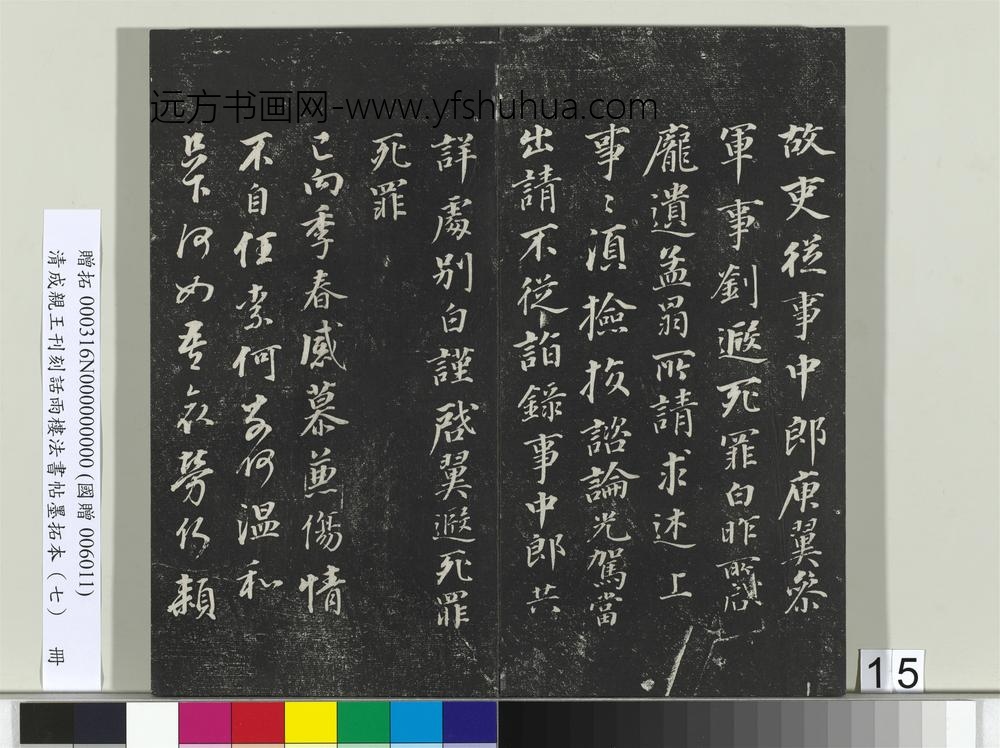 远方书画网-www.yfshuhua.com
故吏從事中郎庾翼參
軍事劉遐死罪白昨所啓
龐遺孟昂所請求述上
事〻須檢按諮論光駕當
出請不從詣錄事中郎共
詳處別白謹啓翼遐死罪
死罪
已向季春感慕兼傷情
不自任柰何柰何温和
足下何如吾哀勞仍賴
贈拓 000316N000000000(國贈 006011)
清成親王刊刻詒晉樓法書帖墨拓本(七) 冊
15